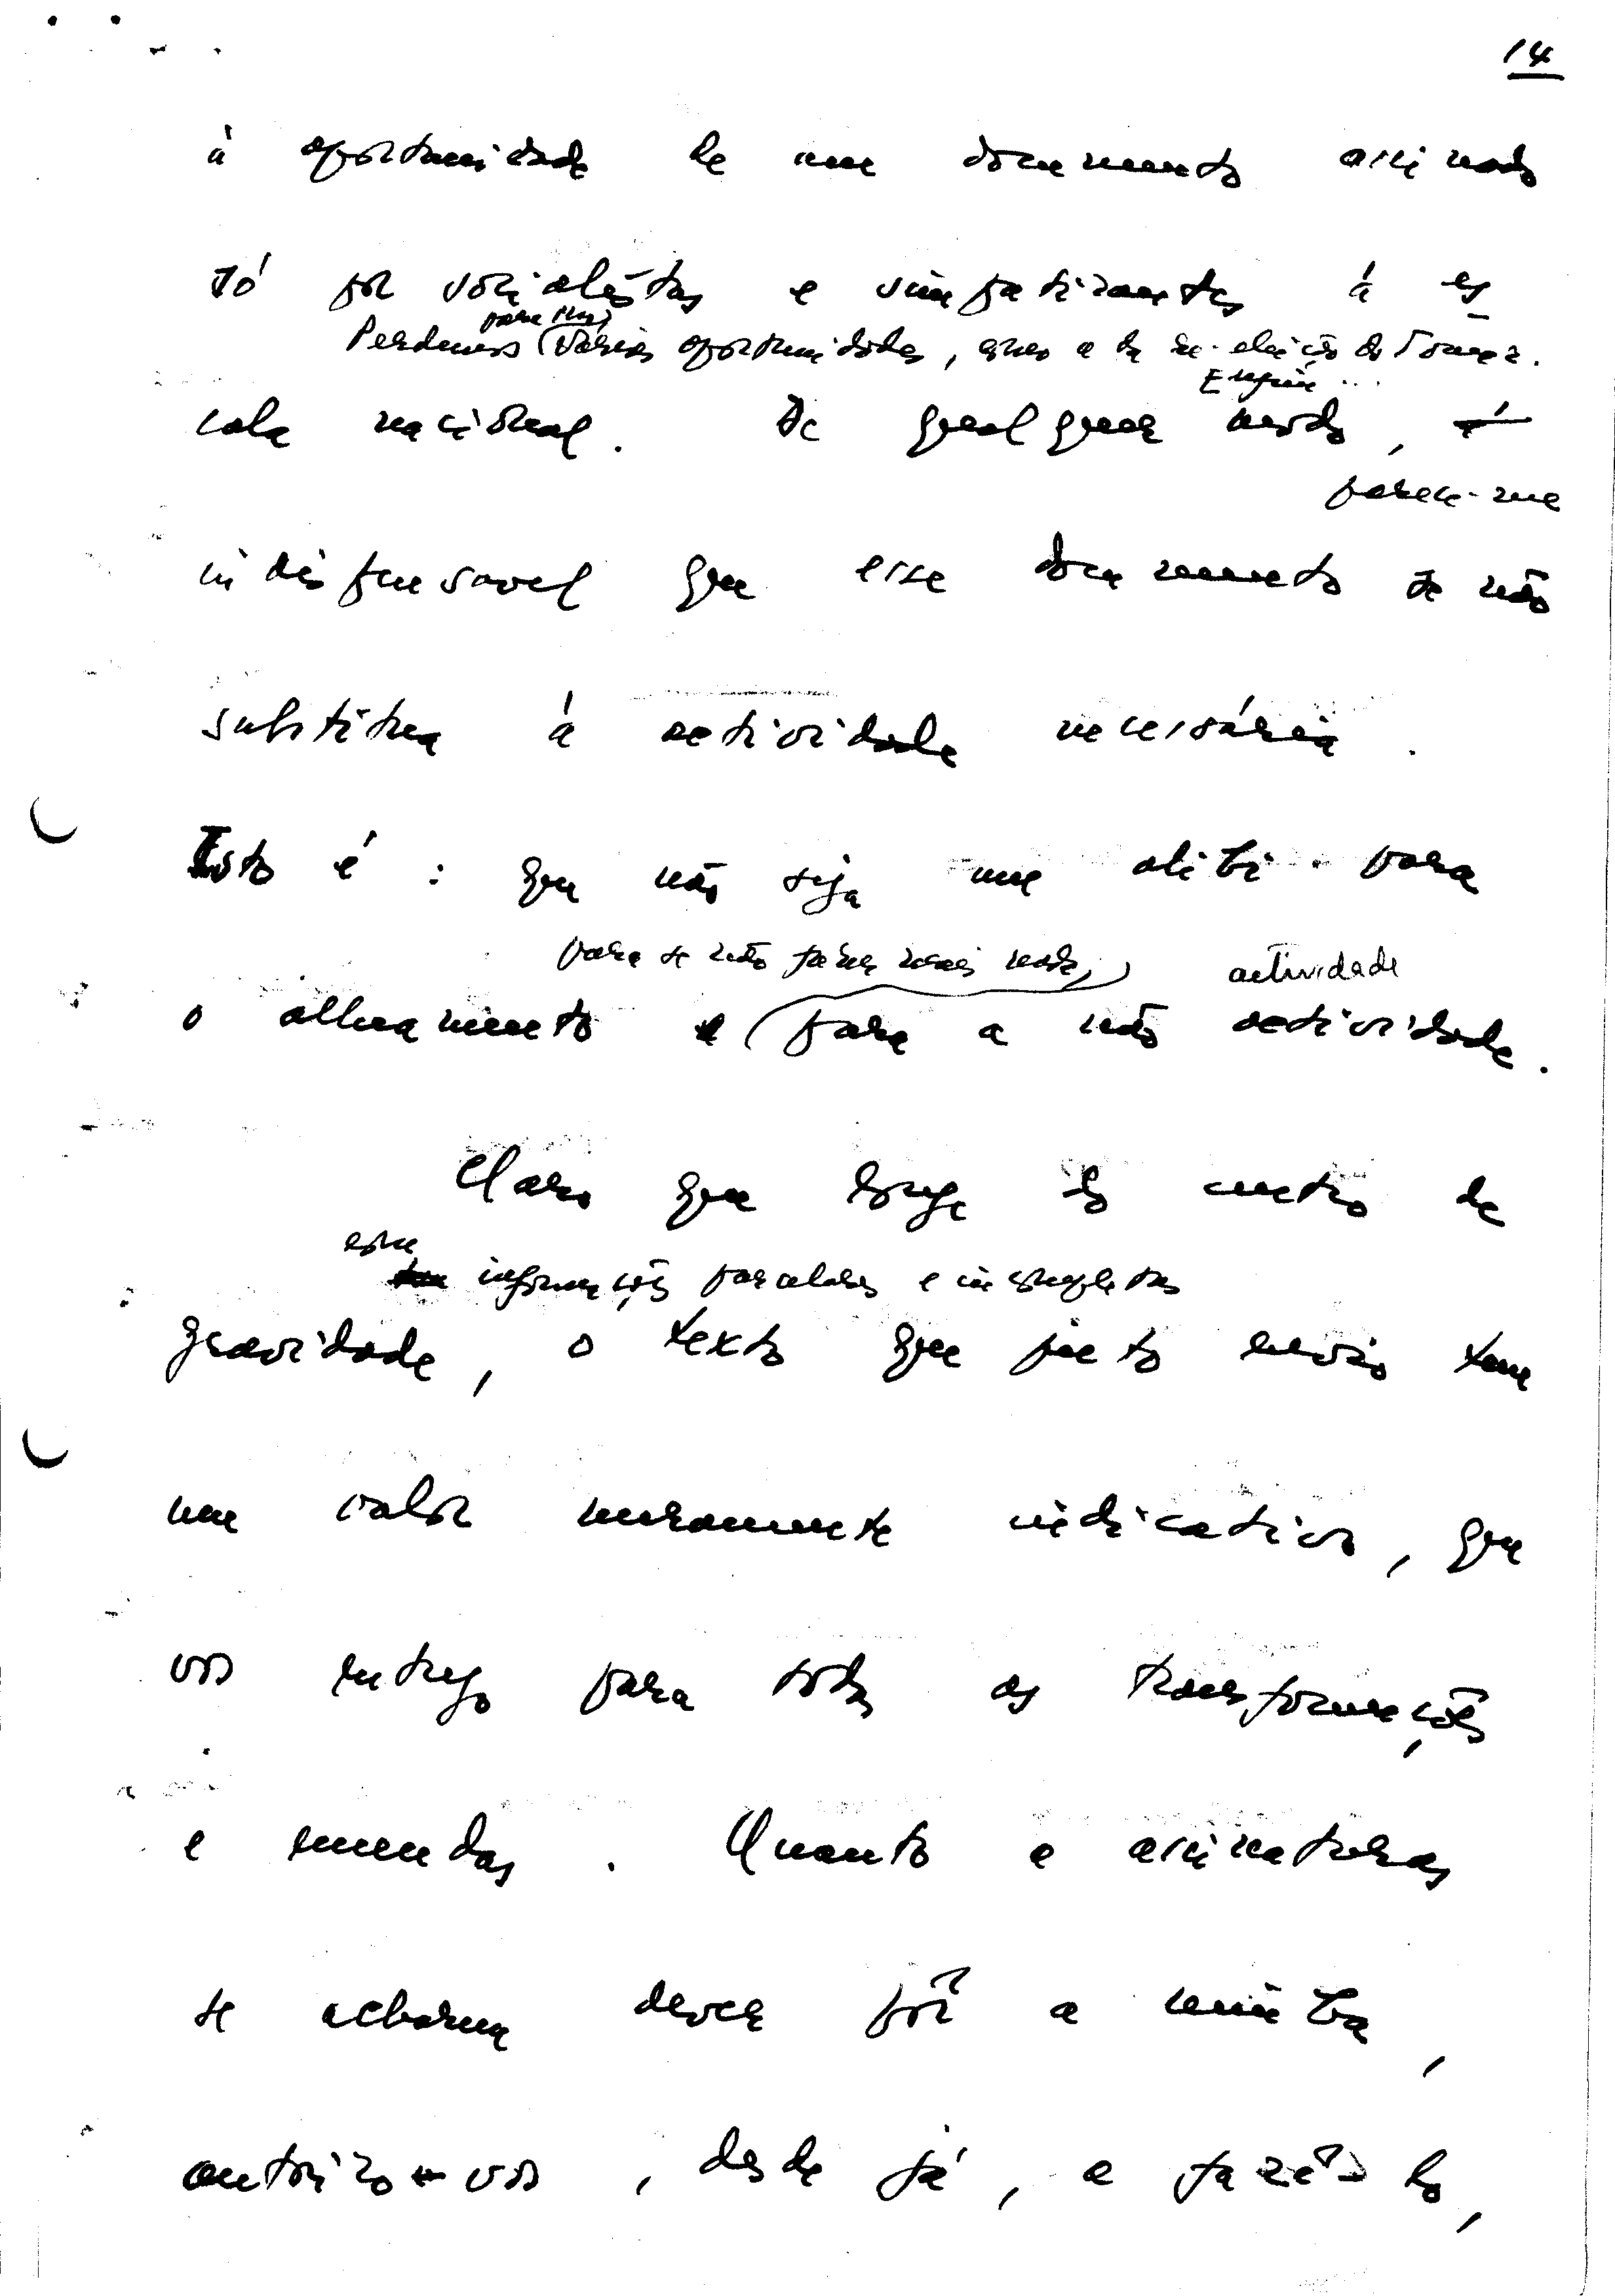 14
à oportunidade de um documento assinado
só por socialistas e simpatizantes à es
para isso
Perdemos (várias oportunidades, como a da re-eleição do Tomaz.
Enfim...
cala nacional. De qualquer modo, é
parece-me
indispensavel que esse documento se não
substitua à actividade necessária.
Isto é: que não seja um alibi para
para se não fazer mais nada,) actividade
o alheamento e (para a não actividade.
Claro que longe do centro de
com informações parcelares e incompletas
gravidade, o texto que junto envio tem
um valor meramente indicativo, que
vos entrego para todas as transformações
e emendas. Quanto a assinaturas
se acharem dever pôr a minha,
autorizo-vos, desde já, a fazê-lo,